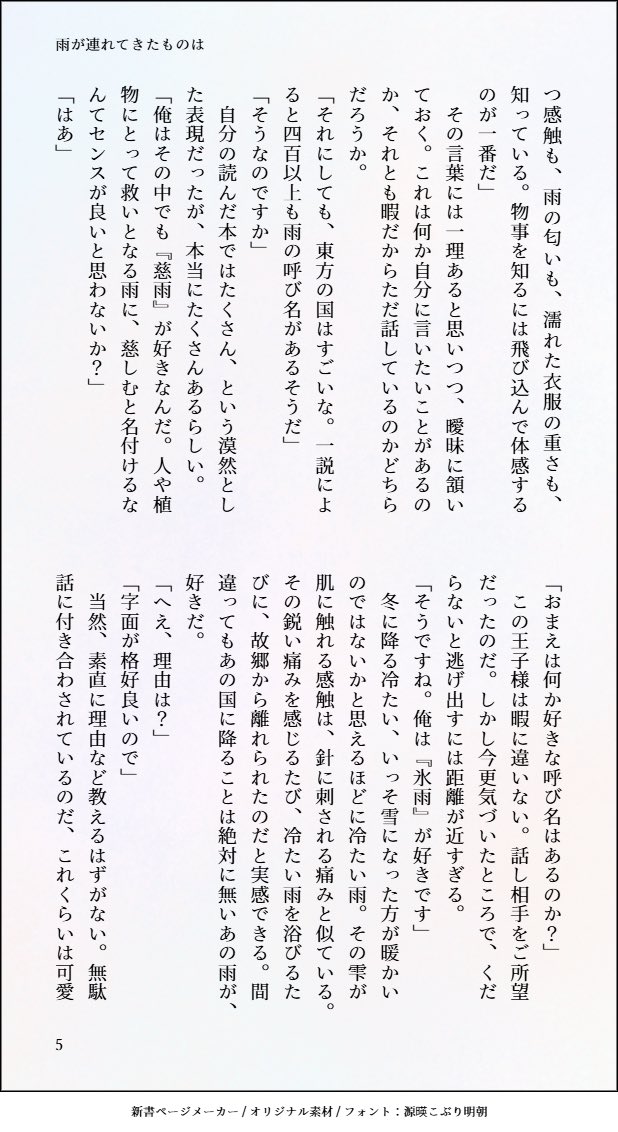 雨が連れてきたものは
つ感触も、雨の匂いも、濡れた衣服の重さも、
知っている。物事を知るには飛び込んで体感する
のが一番だ」
　その言葉には一理あると思いつつ、曖昧に頷い
ておく。これは何か自分に言いたいことがあるの
か、それとも暇だからただ話しているのかどちら
だろうか。
「それにしても、東方の国はすごいな。一説によ
ると四百以上も雨の呼び名があるそうだ」
「そうなのですか」
　自分の読んだ本ではたくさん、という漠然とし
た表現だったが、本当にたくさんあるらしい。
「俺はその中でも『慈雨』が好きなんだ。人や植
物にとって救いとなる雨に、慈しむと名付けるな
んてセンスが良いと思わないか？」
「はあ」
「おまえは何か好きな呼び名はあるのか？」
　この王子様は暇に違いない。話し相手をご所望
だったのだ。しかし今更気づいたところで、くだ
らないと逃げ出すには距離が近すぎる。
「そうですね。俺は『氷雨』が好きです」
　冬に降る冷たい、いっそ雪になった方が暖かい
のではないかと思えるほどに冷たい雨。その雫が
肌に触れる感触は、針に刺される痛みと似ている。
その鋭い痛みを感じるたび、冷たい雨を浴びるた
びに、故郷から離れられたのだと実感できる。間
違ってもあの国に降ることは絶対に無いあの雨が、
好きだ。
「へえ、理由は？」
「字面が格好良いので」
　当然、素直に理由など教えるはずがない。無駄
話に付き合わされているのだ、これくらいは可愛
5
新書ページメーカー / オリジナル素材 / フォント：源暎こぶり明朝